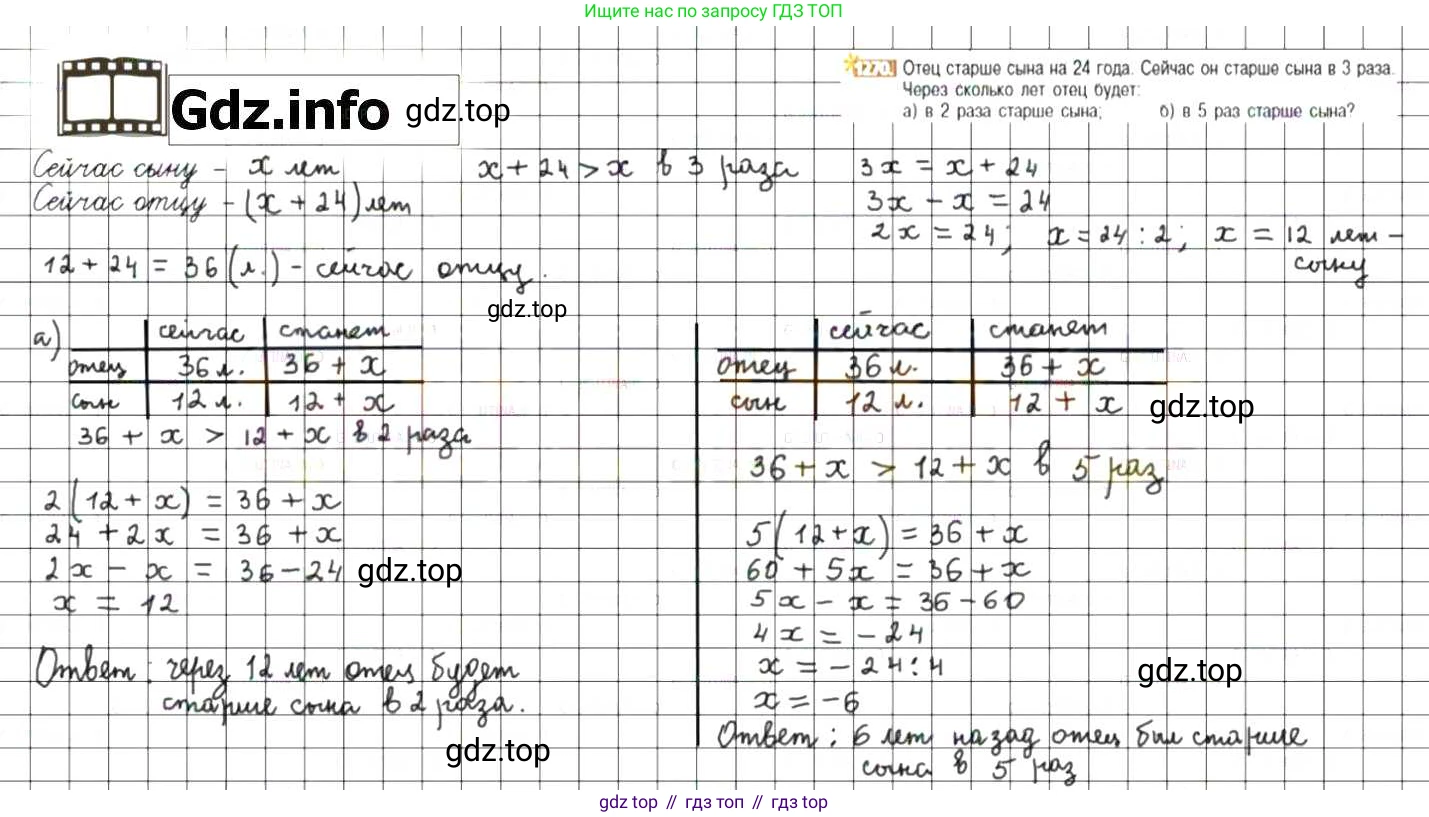 Ищите нас по запросу ГДЗ ТОП
Gdz.info gdz.top
1270. Отец старше сына на 24 года. Сейчас он старше сына в 3 раза.
Через сколько лет отец будет:
а) в 2 раза старше сына; б) в 5 раз старше сына?
Сейчас сыну - x лет
Сейчас отцу - (x + 24) лет
x + 24 > x в 3 раза
3x = x + 24
3x - x = 24
2x = 24; x = 24 : 2; x = 12 лет -
сыну
12 + 24 = 36 (л.) - сейчас отцу.
gdz.top
а)
сейчас станет
отец 36 л. 36 + x
сын 12 л. 12 + x
36 + x > 12 + x в 2 раза
2(12 + x) = 36 + x
24 + 2x = 36 + x
2x - x = 36 - 24 gdz.top
x = 12
Ответ: через 12 лет отец будет
старше сына в 2 раза.
gdz.top
сейчас станет
отец 36 л. 36 + x
сын 12 л. 12 + x gdz.top
36 + x > 12 + x в 5 раз
5(12 + x) = 36 + x
60 + 5x = 36 + x
5x - x = 36 - 60
4x = - 24
x = - 24 : 4 gdz.top
x = - 6
Ответ: 6 лет назад отец был старше
сына в 5 раз
gdz top // гдз топ // gdz top